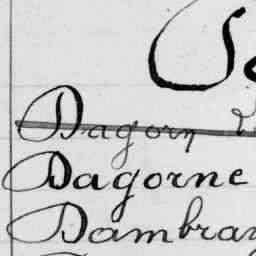 Dagorn
Dagorne
Dambray